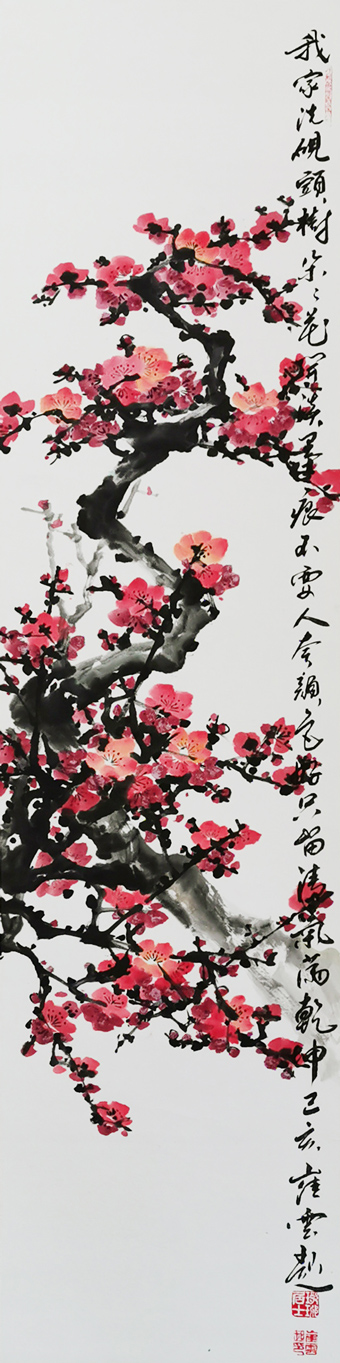 我家洗硯頭樹朵々花開淡墨痕不要人夸顏色好只留清氣滿乾坤己亥崔雲題